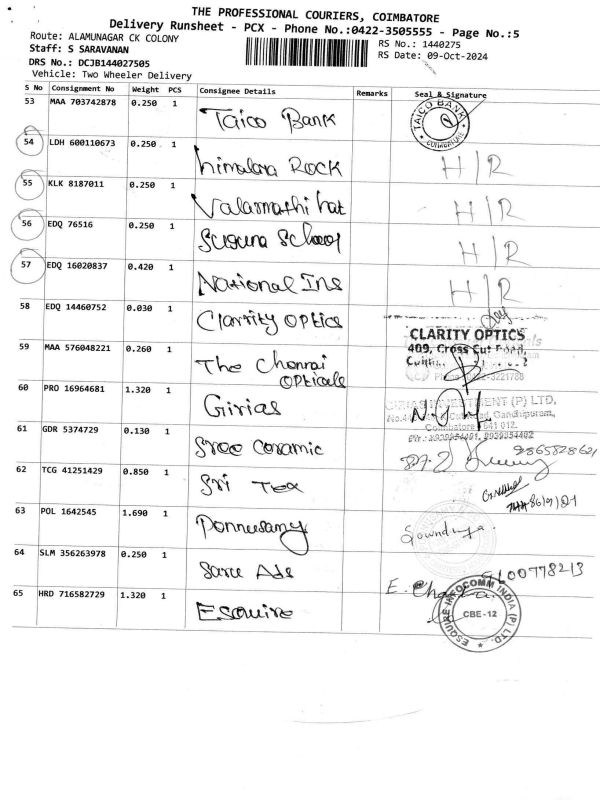 THE PROFESSIONAL COURIERS, COIMBATORE
Delivery Runsheet - PCX - Phone No.:0422-3505555 - Page No.:5
Route: ALAMUNAGAR CK COLONY
RS No.: 1440275
Staff: S SARAVANAN
RS Date: 09-Oct-2024
DRS No.: DCJB144027505
Vehicle: Two Wheeler Delivery
S No Consignment No Weight PCS Consignee Details Remarks Seal & Signature
53 MAA 703742878 0.250 1 Taico Bank TAICO BANK COIMBATORE
54 LDH 600110673 0.250 1 himalaya ROCK H/R
55 KLK 8187011 0.250 1 Valarmathi hat H/R
56 EDQ 76516 0.250 1 Suguna School H/R
57 EDQ 16020837 0.420 1 National Ins H/R
58 EDQ 14460752 0.030 1 Clarity Optics
CLARITY OPTICS
409, Cross Cut Road,
59 MAA 576048221 0.260 1 The Chennai Opticals
60 PRO 16964681 1.320 1 Girias
INVESTMENT (P) LTD.
Gandhipuram,
Coimbatore 641 012.
61 GDR 5374729 0.130 1 Sree Ceramic 9865828621
62 TCG 41251429 0.850 1 Sri Tex
63 POL 1642545 1.690 1 Ponnusamy Sowndurya.
64 SLM 356263978 0.250 1 Saru Ads
65 HRD 716582729 1.320 1 Esquire
ESQUIRE INFOCOMM INDIA (P) LTD. CBE-12